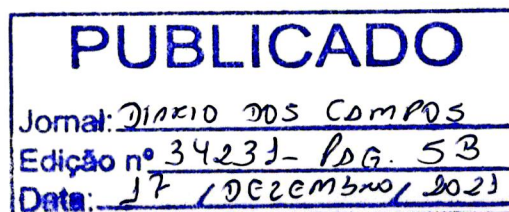 PUBLICADO
Jornal: DIARIO DOS CAMPOS
Edição nº 34231- PAG. 5B
Data: 17 / DEZEMBRO / 2021